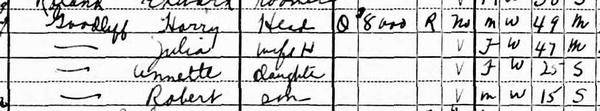 Edward
Goodliff Harry Head O $8000 R No M W 49 M
— Julia Wife H V F W 47 M
— Annette Daughter V F W 25 S
— Robert Son V M W 15 S